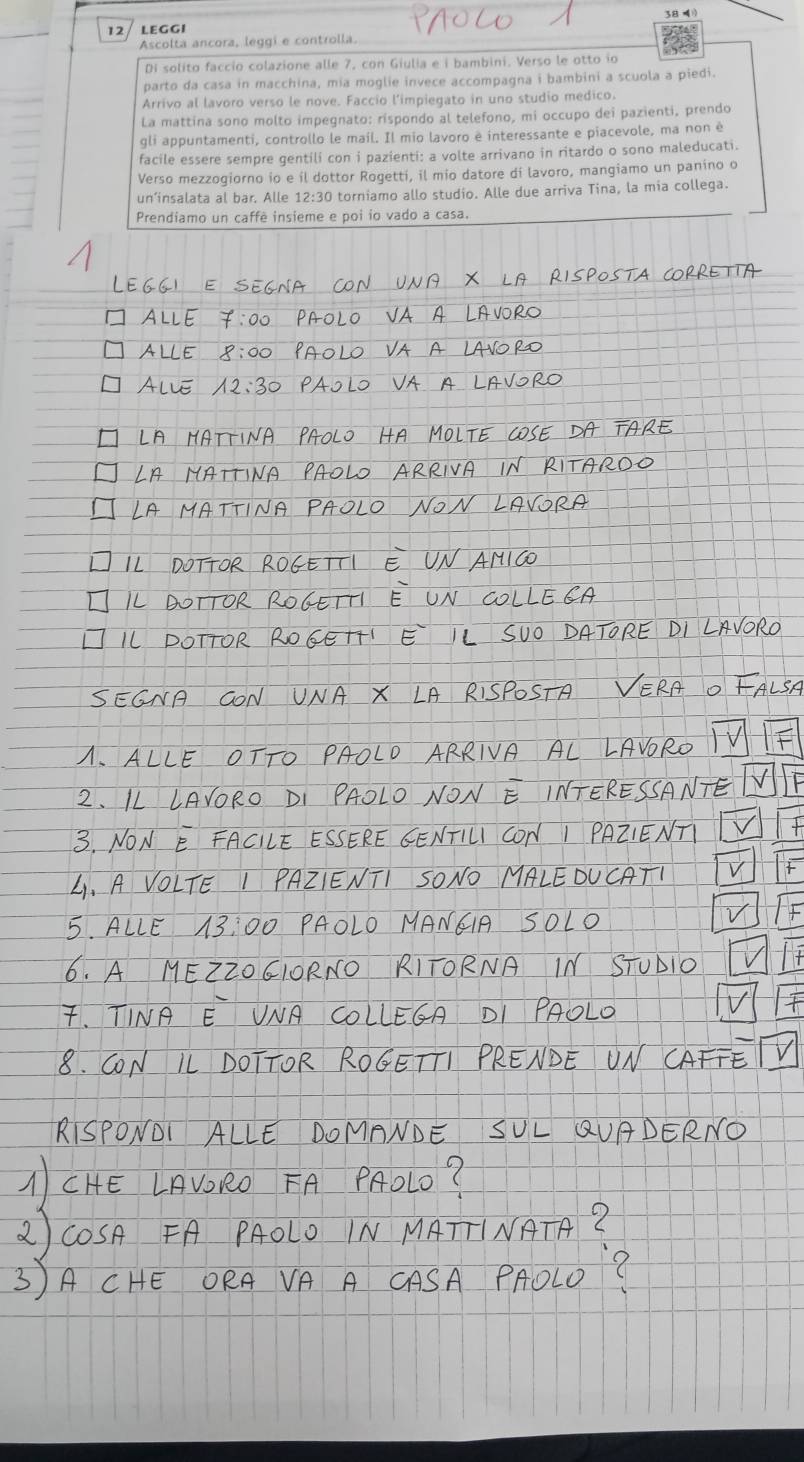 PAOLO 1
38
12 LEGGI
Ascolta ancora, leggi e controlla.
Di solito faccio colazione alle 7, con Giulia e i bambini. Verso le otto io
parto da casa in macchina, mia moglie invece accompagna i bambini a scuola a piedi.
Arrivo al lavoro verso le nove. Faccio l'impiegato in uno studio medico.
La mattina sono molto impegnato: rispondo al telefono, mi occupo dei pazienti, prendo
gli appuntamenti, controllo le mail. Il mio lavoro è interessante e piacevole, ma non è
facile essere sempre gentili con i pazienti: a volte arrivano in ritardo o sono maleducati.
Verso mezzogiorno io e il dottor Rogetti, il mio datore di lavoro, mangiamo un panino o
un'insalata al bar. Alle 12:30 torniamo allo studio. Alle due arriva Tina, la mia collega.
Prendiamo un caffè insieme e poi io vado a casa.
1
LEGGI E SEGNA CON UNA X LA RISPOSTA CORRETTA
□ ALLE 7:00 PAOLO VA A LAVORO
□ ALLE 8:00 PAOLO VA A LAVORO
□ ALLE 12:30 PAOLO VA A LAVORO
□ LA MATTINA PAOLO HA MOLTE COSE DA FARE
□ LA MATTINA PAOLO ARRIVA IN RITARDO
□ LA MATTINA PAOLO NON LAVORA
□ IL DOTTOR ROGETTI È UN AMICO
□ IL DOTTOR ROGETTI È UN COLLEGA
□ IL DOTTOR ROGETTI È IL SUO DATORE DI LAVORO
SEGNA CON UNA X LA RISPOSTA VERA O FALSA
1. ALLE OTTO PAOLO ARRIVA AL LAVORO V F
2. IL LAVORO DI PAOLO NON È INTERESSANTE V F
3. NON È FACILE ESSERE GENTILI CON I PAZIENTI V F
4. A VOLTE I PAZIENTI SONO MALEDUCATI V F
5. ALLE 13:00 PAOLO MANGIA SOLO V F
6. A MEZZOGIORNO RITORNA IN STUDIO V F
7. TINA È UNA COLLEGA DI PAOLO V F
8. CON IL DOTTOR ROGETTI PRENDE UN CAFFÈ V
RISPONDI ALLE DOMANDE SUL QUADERNO
1) CHE LAVORO FA PAOLO?
2) COSA FA PAOLO IN MATTINATA?
3) A CHE ORA VA A CASA PAOLO?